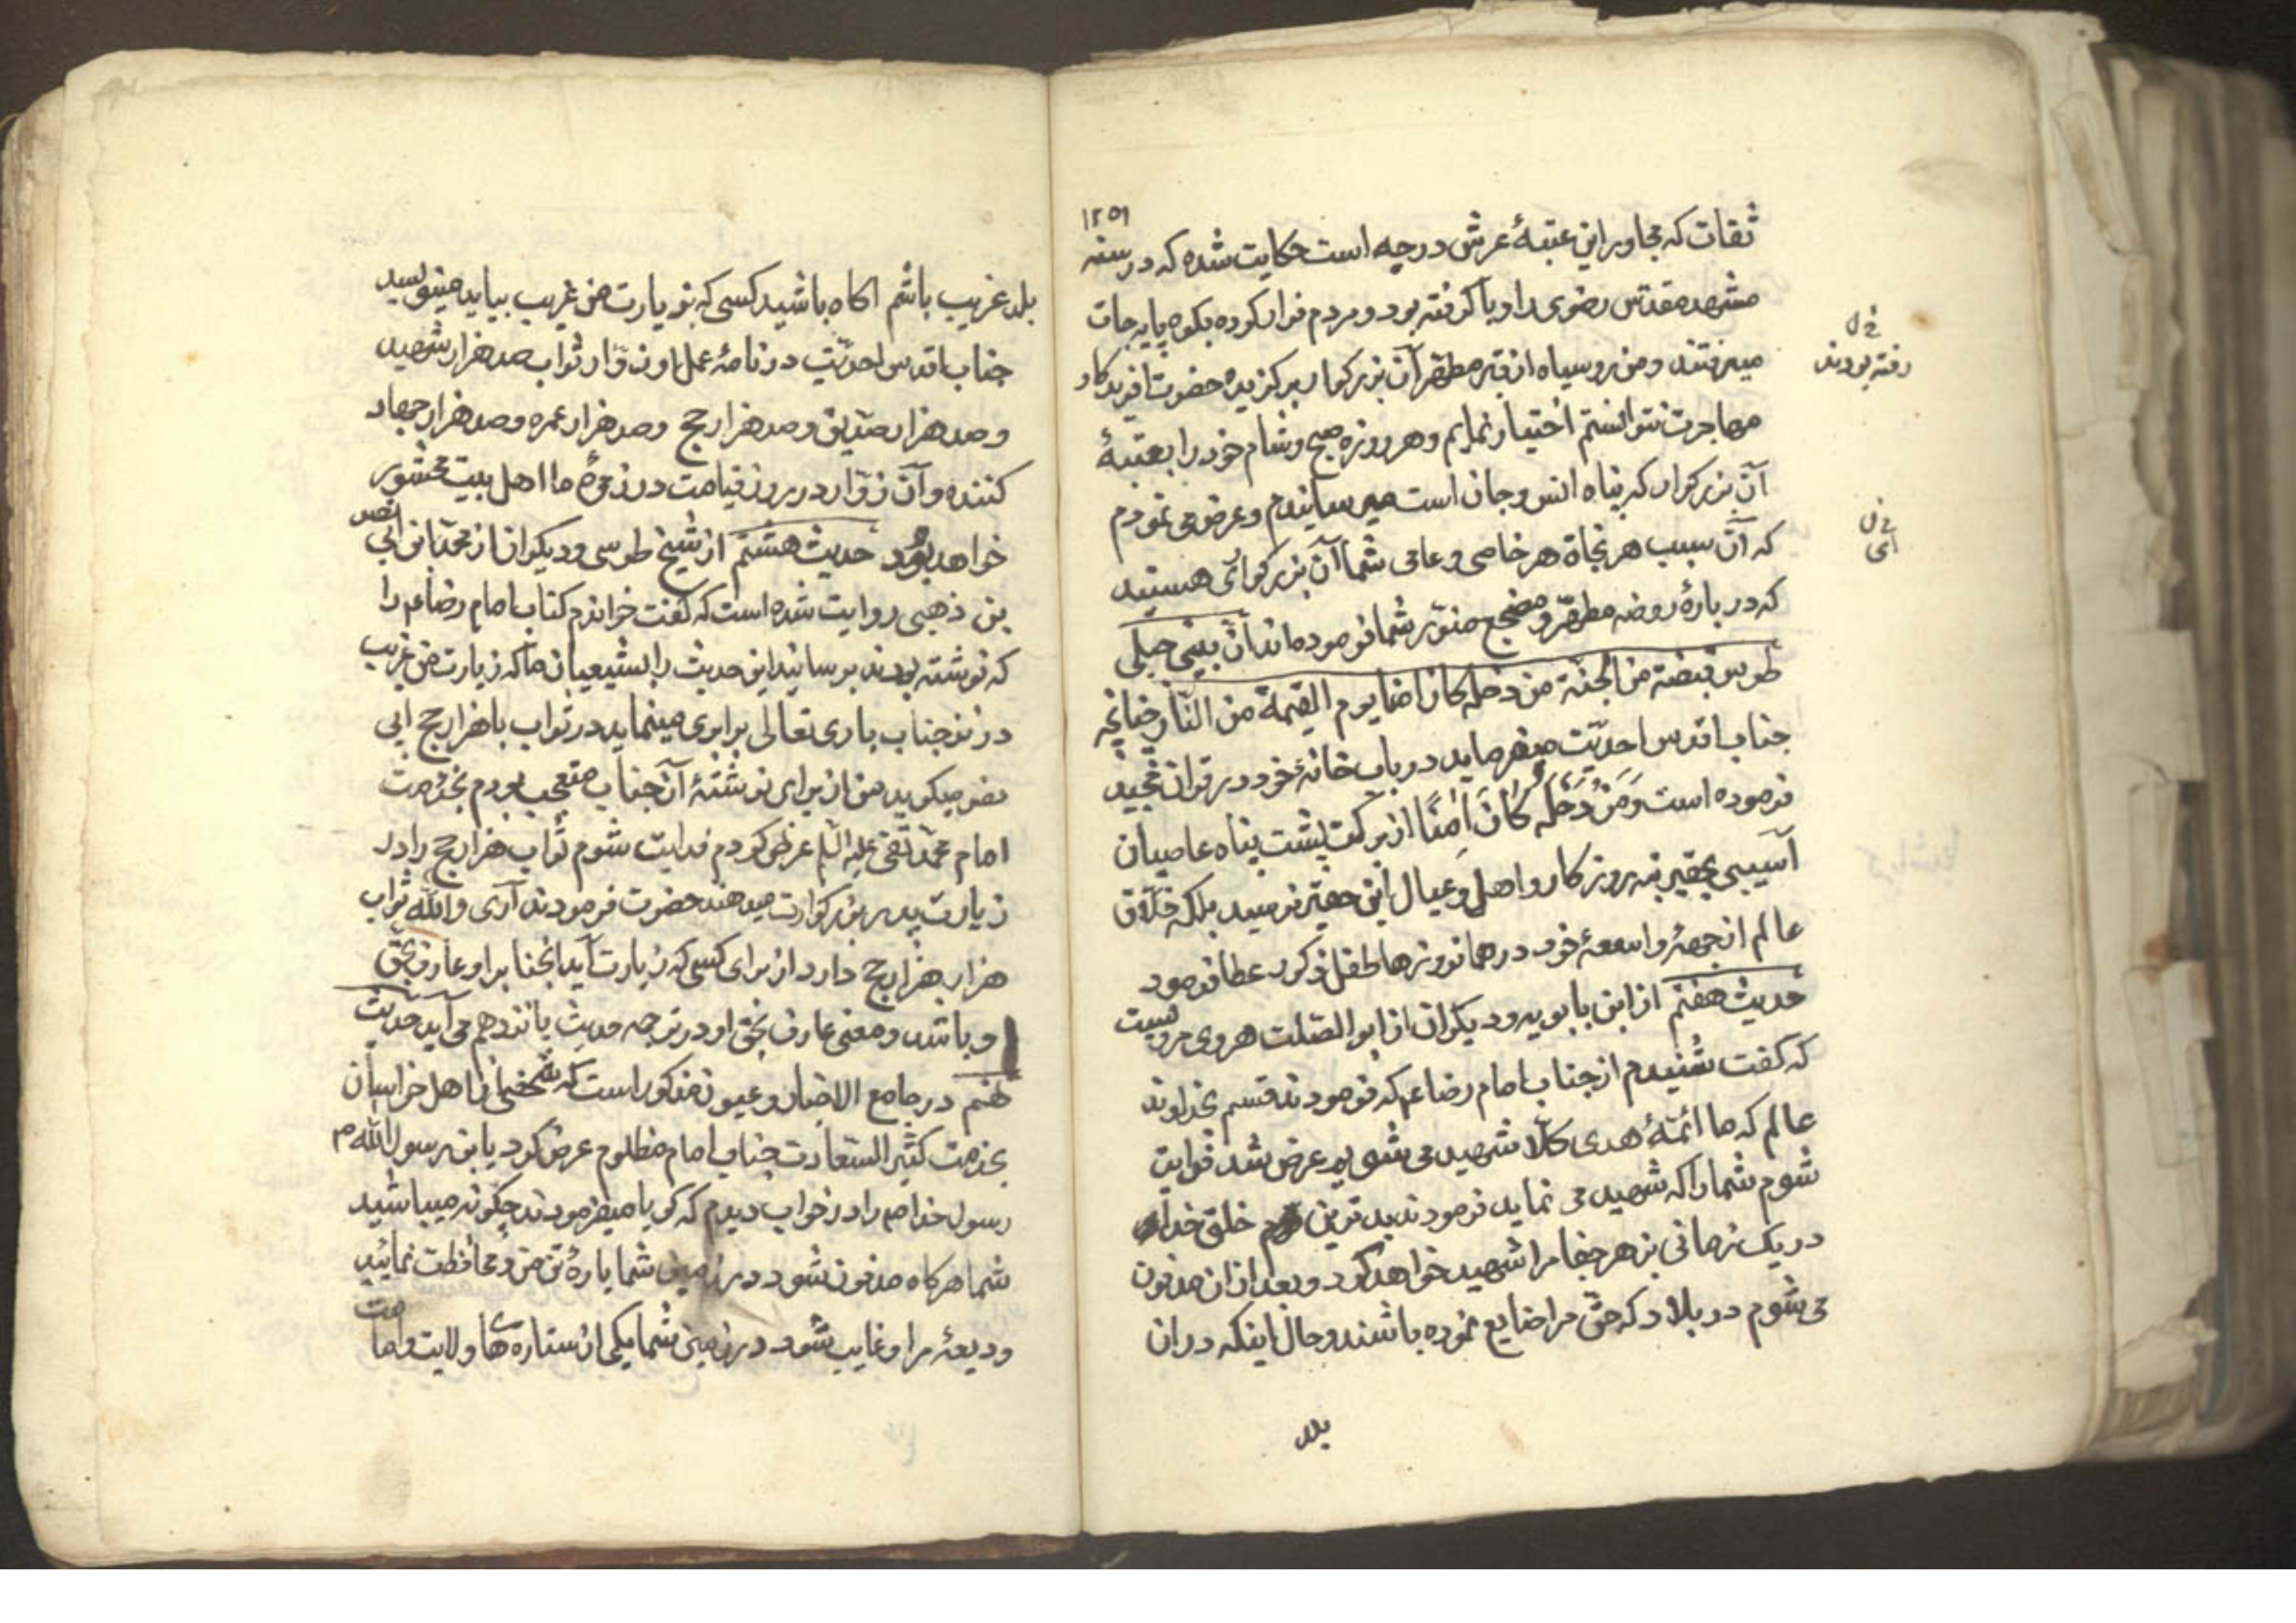 ۱۲۵۹
ثقات که مجاور این عتبهٔ عرش درجه است حکایت شده که در سنه
مشهد مقدس رضوی را وبا گرفته بود و مردم فرار کرده بکوه پایه جات
میرفتند و من رو سیاه از قبر مطهر آن بزرکوار برکزیده حضرت آفریدکار
مهاجرت نتوانستم اختیار نمایم و هر روزه صبح و شام خود را بعتبهٔ
آن بزرکوار که پناه انس و جان است میرسانیدم و عرض می نمودم
که آن سبب هر نجاة هر خاصی و عامی شما آن بزرکوائی هستید
که در بارهٔ روضه مطهر و مضجع منوّر شما فرموده اند انّ بین جبلی
طوس قبضة من الجنة من دخلها کان امنا یوم القیمة من النّار چنانچه
جناب اقدس احدیّت میفرماید در باب خانهٔ خود در قران مجید
فرموده است وَمَنْ دَخَلَهُ کانَ اٰمِنًا از برکت پشت پناه عاصیان
آسیبی بحقیر نه روزکار و اهل و عیال این حقیر نرسید بلکه خلاق
عالم از جمهٔ واسعهٔ خود در همانروزها طفل ذکور عطا فرمود
حدیث هفتم از ابن بابویه و دیکران از ابو الصّلت هروی مرویست
که کفت شنیدم از جناب امام رضا ع که فرمودند قسم بخداوند
عالم که ما ائمّهٔ هدی کلّا شهید می شویم عرض شد فدایت
شوم شما را که شهید می نماید فرمودند بدترین خلق خدا
در یک زمانی بزهر جفا مرا شهید خواهد کرد و بعد از ان مدفون
می شوم در بلاد که حقّ مرا ضایع نموده باشند و حال اینکه در ان
بلد
خ ل
رفته بودند
خ ل
ائی
بلد غریب باشم اکاه باشید کسی که بزیارت من غریب بیاید مینویسد
جناب اقدس احدیّت در نامهٔ عمل اون زوّار ثواب صد هزار شهید
و صد هزار صدّیق و صد هزار حج و صد هزار عمره و صد هزار جهاد
کننده و آن زوّار در روز قیامت در زمرهٔ ما اهل بیت محشور
خواهد بود حدیث هشتم از شیخ طوسی و دیکران از محمّد ابن ابی نصر
بن ذهبی روایت شده است که کفت خواندم کتاب امام رضا ع را
که نوشته بودند برسانید این حدیث را بشیعیان ما که زیارت من غریب
در نزد جناب باری تعالی برابری مینماید در ثواب با هزار حج ابی
نصر میکوید من از برای نوشتهٔ آن جناب متعجب بودم بخدمت
امام محمّد تقی علیه السّلم عرض کردم فدایت شوم ثواب هزار حج را در
زیارت پدر بزرکوارت میدهند حضرت فرمودند آری واللّه ثواب
هزار هزار حج دارد از برای کسی که زیارت آید آنجنا برا و عارف بحق
او باشد و معنی عارف بحق او در ترجمه حدیث یانزدهم می آید حدیث
نهم در جامع الاخبار و عیون مذکور است که شخصی از اهل خراسان
بخدمت کثیر السّعادت جناب امام مظلوم عرض کرد یا بن رسول اللّه م
رسول خدا ص را در خواب دیدم که کویا میفرمودند چکونه میباشید
شما هرکاه مدفون شود در زمین شما پارهٔ تن من و محافظت نمائید
ودیعهٔ مرا و غایب شود در زمین شما یکی از ستارهٔ های ولایت و امامت